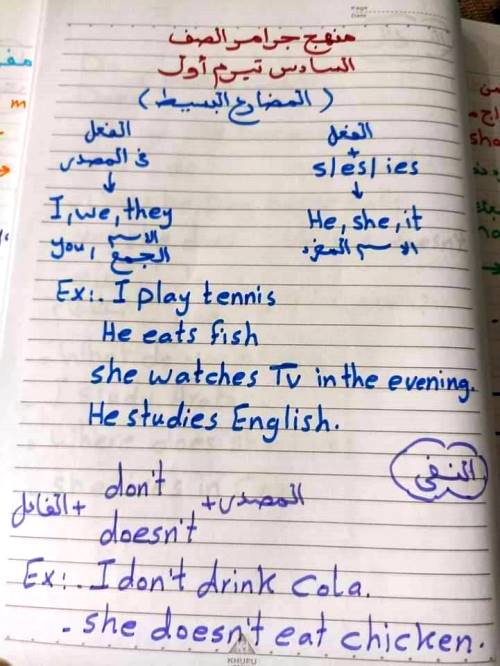 Page
Date
منهج جرامر الصف
السادس تيرم أول
( المضارع البسيط )
الفعل
+
s/es/ies
↓
He, she, it
الاسم المفرد
الفعل
فى المصدر
↓
I, we, they
you, الاسم الجمع
Ex:. I play tennis
He eats fish
she watches Tv in the evening.
He studies English.
النفى
الفاعل + don't
doesn't + المصدر
Ex:. I don't drink Cola.
- she doesn't eat chicken.
KHUFU